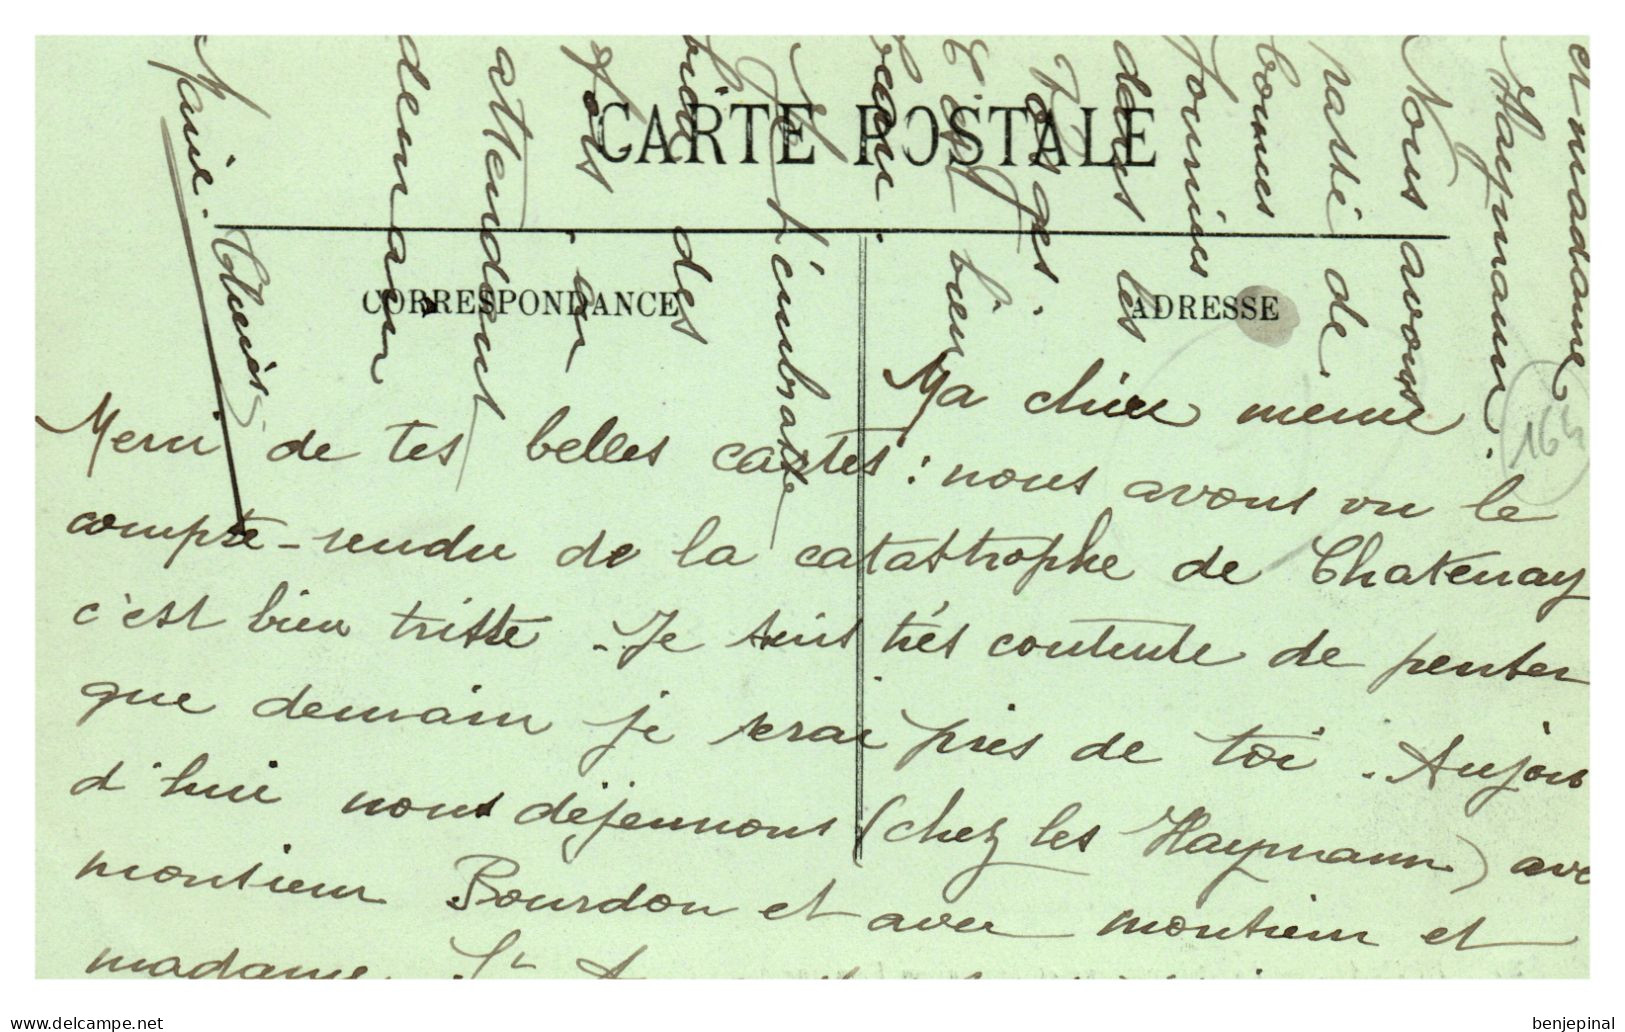 CARTE POSTALE
CORRESPONDANCE
ADRESSE
Ma chère meme
Merci de tes belles cartes : nous avons vu le
compte-rendu de la catastrophe de Chatenay
c'est bien triste. Je suis très contente de penser
que demain je serai près de toi. Aujour
d'hui nous déjeunons (chez les Haymann) avec
monsieur Bourdon et avec monsieur et
madame St
et madame
Haymann.
Nous avons
passé de
bonnes
journées
dans les
Vosges.
C'est bien
beau.
Je t'embrasse
bien des
fois en
attendant
demain
Marie Thérèse
164
www.delcampe.net
benjepinal